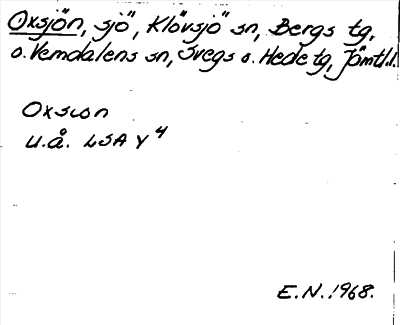 Oxsjön, sjö, Klövsjö sn, Bergs tg,
o. Vemdalens sn, Svegs o. Hede tg, Jämtl.l.
Oxsion
u.å. LSA Y 4
E.N. 1968.